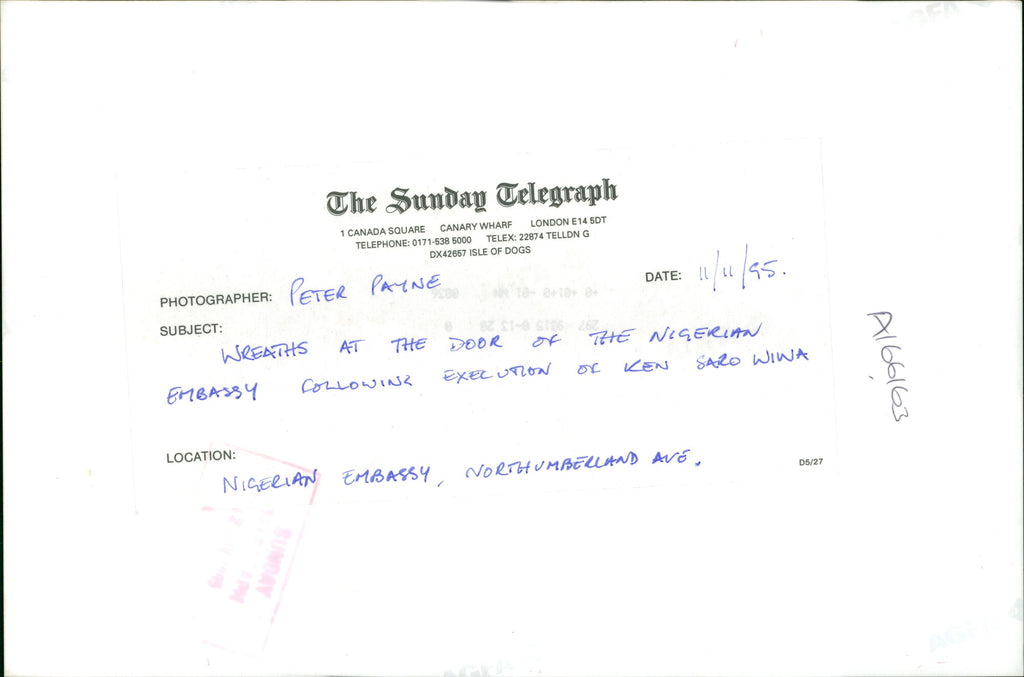 The Sunday Telegraph
1 CANADA SQUARE CANARY WHARF LONDON E14 5DT
TELEPHONE: 0171-538 5000 TELEX: 22874 TELLDN G
DX42657 ISLE OF DOGS
PHOTOGRAPHER: PETER PAYNE
DATE: 11/11/95.
SUBJECT:
WREATHS AT THE DOOR OF THE NIGERIAN
EMBASSY FOLLOWING EXECUTION OF KEN SARO WIWA
LOCATION:
NIGERIAN EMBASSY, NORTHUMBERLAND AVE.
D5/27
SUNDAY
AGFA
AGFA
AGFA